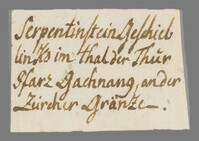 Serpentinstein Geschieb
links im thal der Thur
Pfarz Gachnang, an der
Zürcher Gränze.